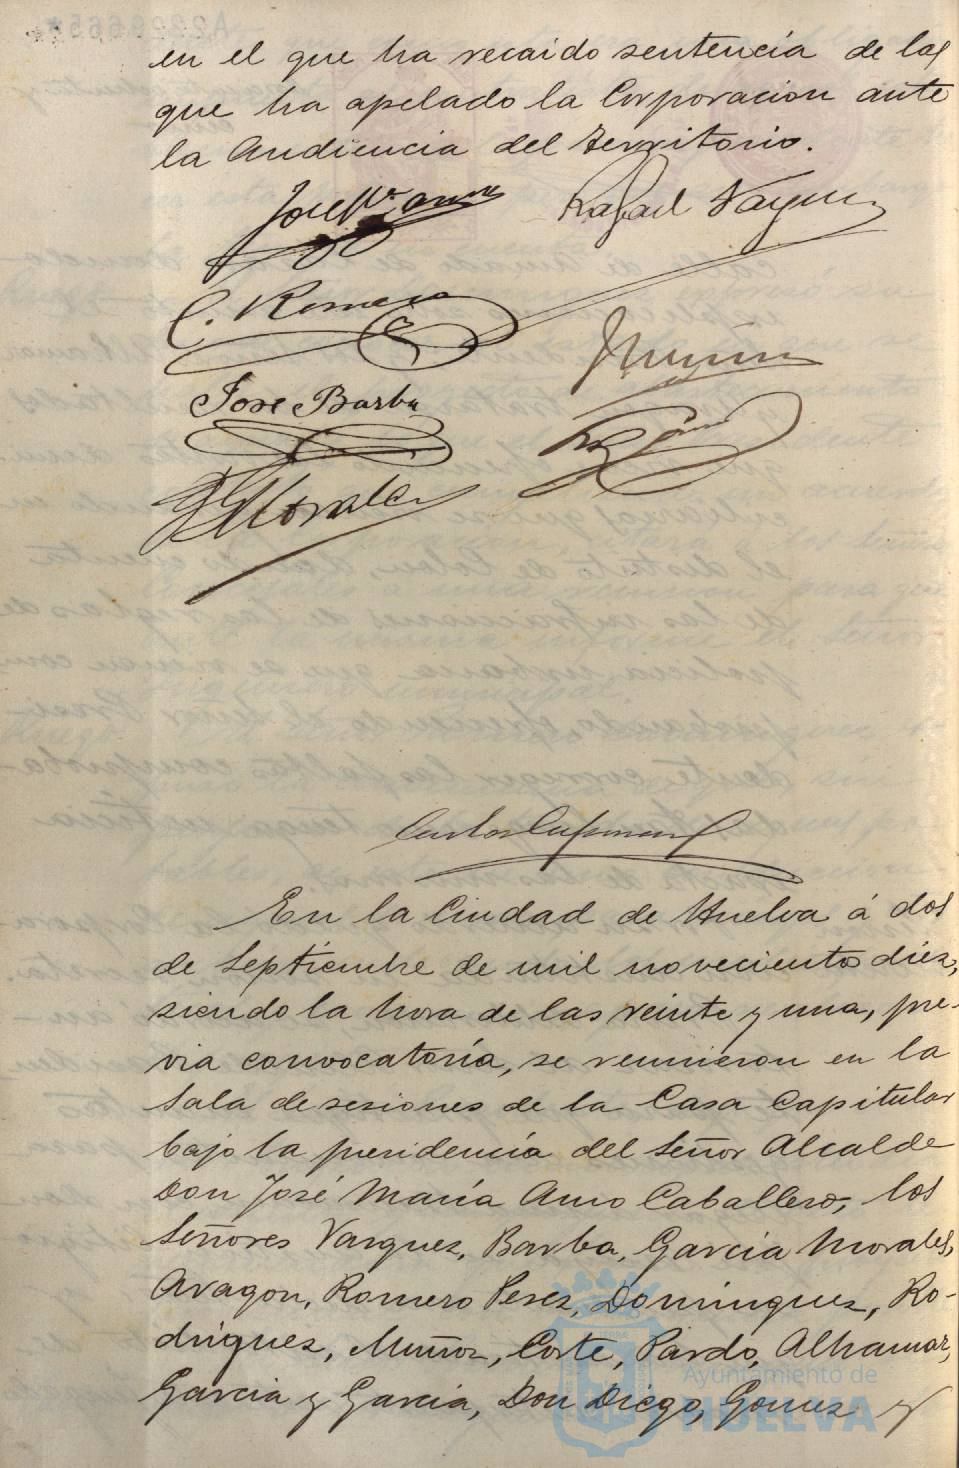 en el que ha recaido sentencia de las
que ha apelado la Corporacion ante
la Audiencia del territorio.
Rafael Vazquez
C. Romero
José Barba
Morales
En la Ciudad de Huelva á dos
de Septiembre de mil novecientos diez,
siendo la hora de las veinte y una, pre-
via convocatoria, se reunieron en la
Sala de sesiones de la Casa Capitular
bajo la presidencia del Señor Alcalde
Don José María Amo Caballero, los
Señores Vazquez, Barba, Garcia Morales,
Aragon, Romero Perez, Dominguez, Ro-
driguez, Muñoz, Corte, Pardo, Alhamar,
Garcia y Garcia, Don Diego, Gomez y
Ayuntamiento de
HUELVA